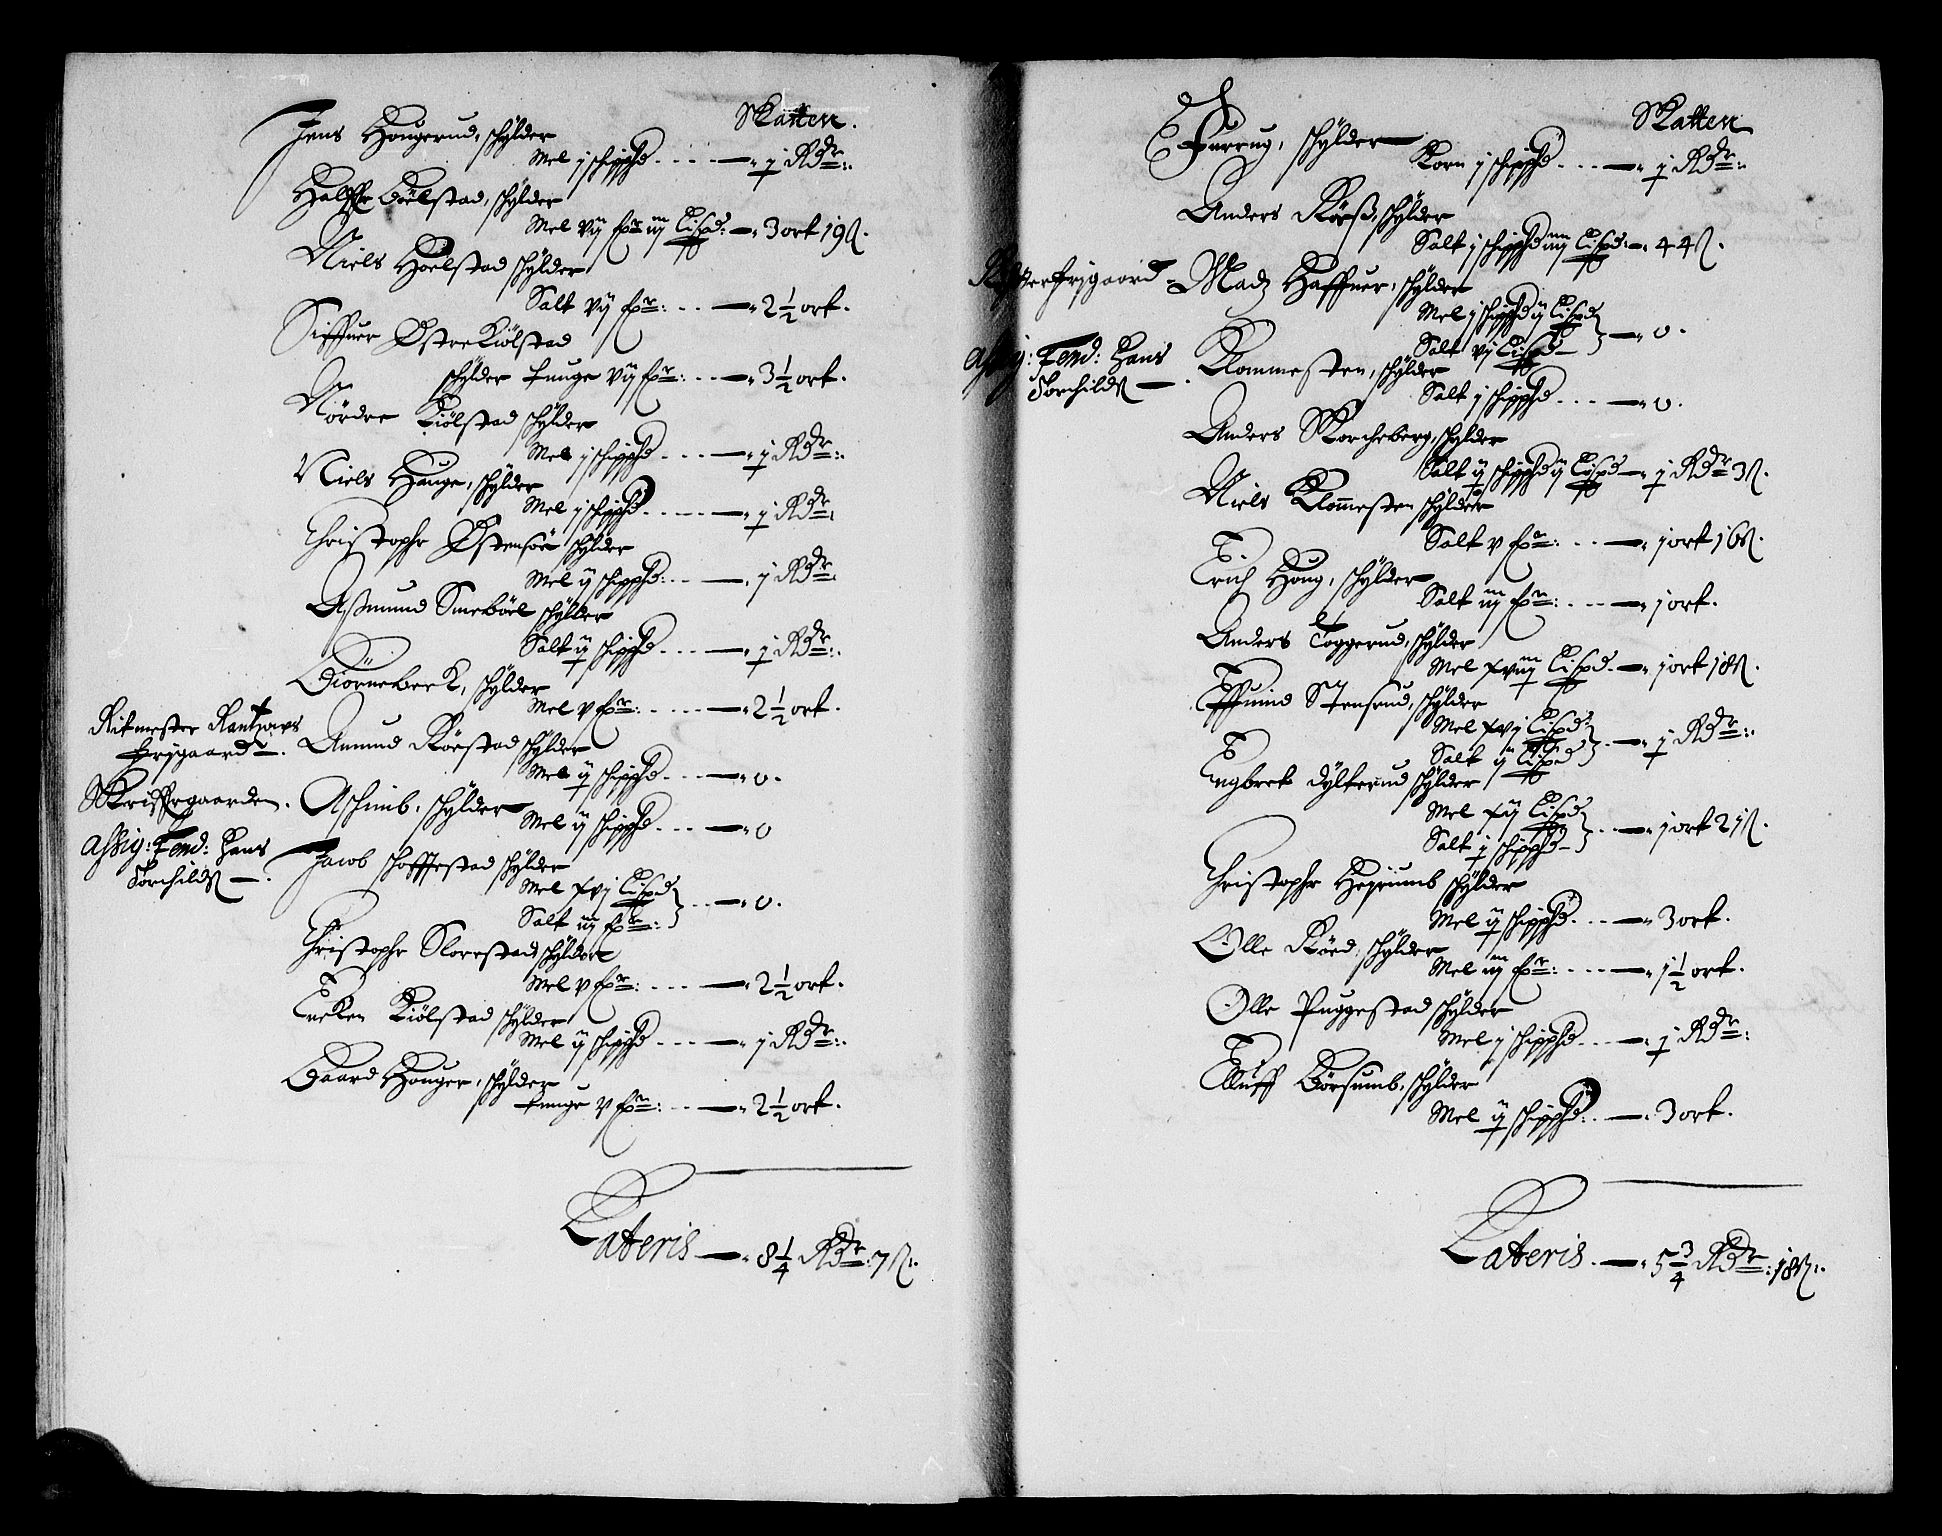 Skatten.
Jens Hougerud, schylder
Mel j schippd – j Rdr:
Halffr Bøelstad, schylder
Mel vij fxr iij Lispd: – 3 ort 19 ß.
Niels Hoelstad schylder
Salt vij fxr: – 2½ ort.
Siffuer Østre Kiølstad
schylder tunge vij fxr: – 3½ ort.
Nørdre Kiølstad schylder
Mel j schippd – j Rdr:
Niels Hauge, schylder
Mel j schippd – j Rdr:
Christopher Østensøe schylder
Mel ij schippd: – j Rdr:
Aßmund Smebøel schylder
Salt ij schippd – j Rdr:
Biørnebeck, schylder
Mel v fxr: – 2½ ort.
Ritmester Rantzows
frijgaard –. Amund Rørstad schylder
Mel ij schippd – 0.
Skriffergaarden. Aschimb, schylder
Mel ij schippd – 0
Assig: Fend: Hans
Torchildß –. Jacob schofftestad schylder
Mel xvj Lispd
Salt iij fxr: – 0.
Christopher Slorestad schylder
Mel v fxr: – 2½ ort.
Encken Kiølstad schylder
Mel ij schippd – j Rdr:
Gaard Houger, schylder
tunge v fxr: – 2½ ort.
Lateris – 8¼ Rdr: 7 ß:
Skatten
Furrug, schylder
Korn j schippd – j Rdr:
Anders Røeß, schylder
Salt j schippd iiij Lispd: – 44 ß.
frijgaard – Madz Haffuer, schylder
Mel j schippd ij Lispd
Salt vj Lispd – 0.
Assig: Fend: Hans
Torchildß –. Klommesten, schylder
Salt j schippd – 0.
Anders Skorcheberg, schylder
Salt ij schippd ij Lispd – j Rdr 3 ß.
Niels Klom̄esten schylder
Salt v fxr: – j ort 16 ß.
Erich Houg, schylder
Salt iij fxr: – j ort.
Anders Toggerud, schylder
Mel xviij Lispd – j ort 18 ß.
Effuind Stensrud, schylder
Mel xvj Lispd:
Salt ij Lispd – j Rdr:
Engbret dyltterud schylder
Mel xij Lispd
Salt j schippd – j ort 21 ß.
Christopher Hegiumb schylder
Mel ij schippd – 3 ort.
Olle Røed, schylder
Mel iij fxr: – 1½ ort.
Olle Puggestad schylder
Mel j schippd – j Rdr:
Elluff Børsumb, schylder
Mel ij schippd: – 3 ort.
Lateris – 5¾ Rdr: 18 ß: